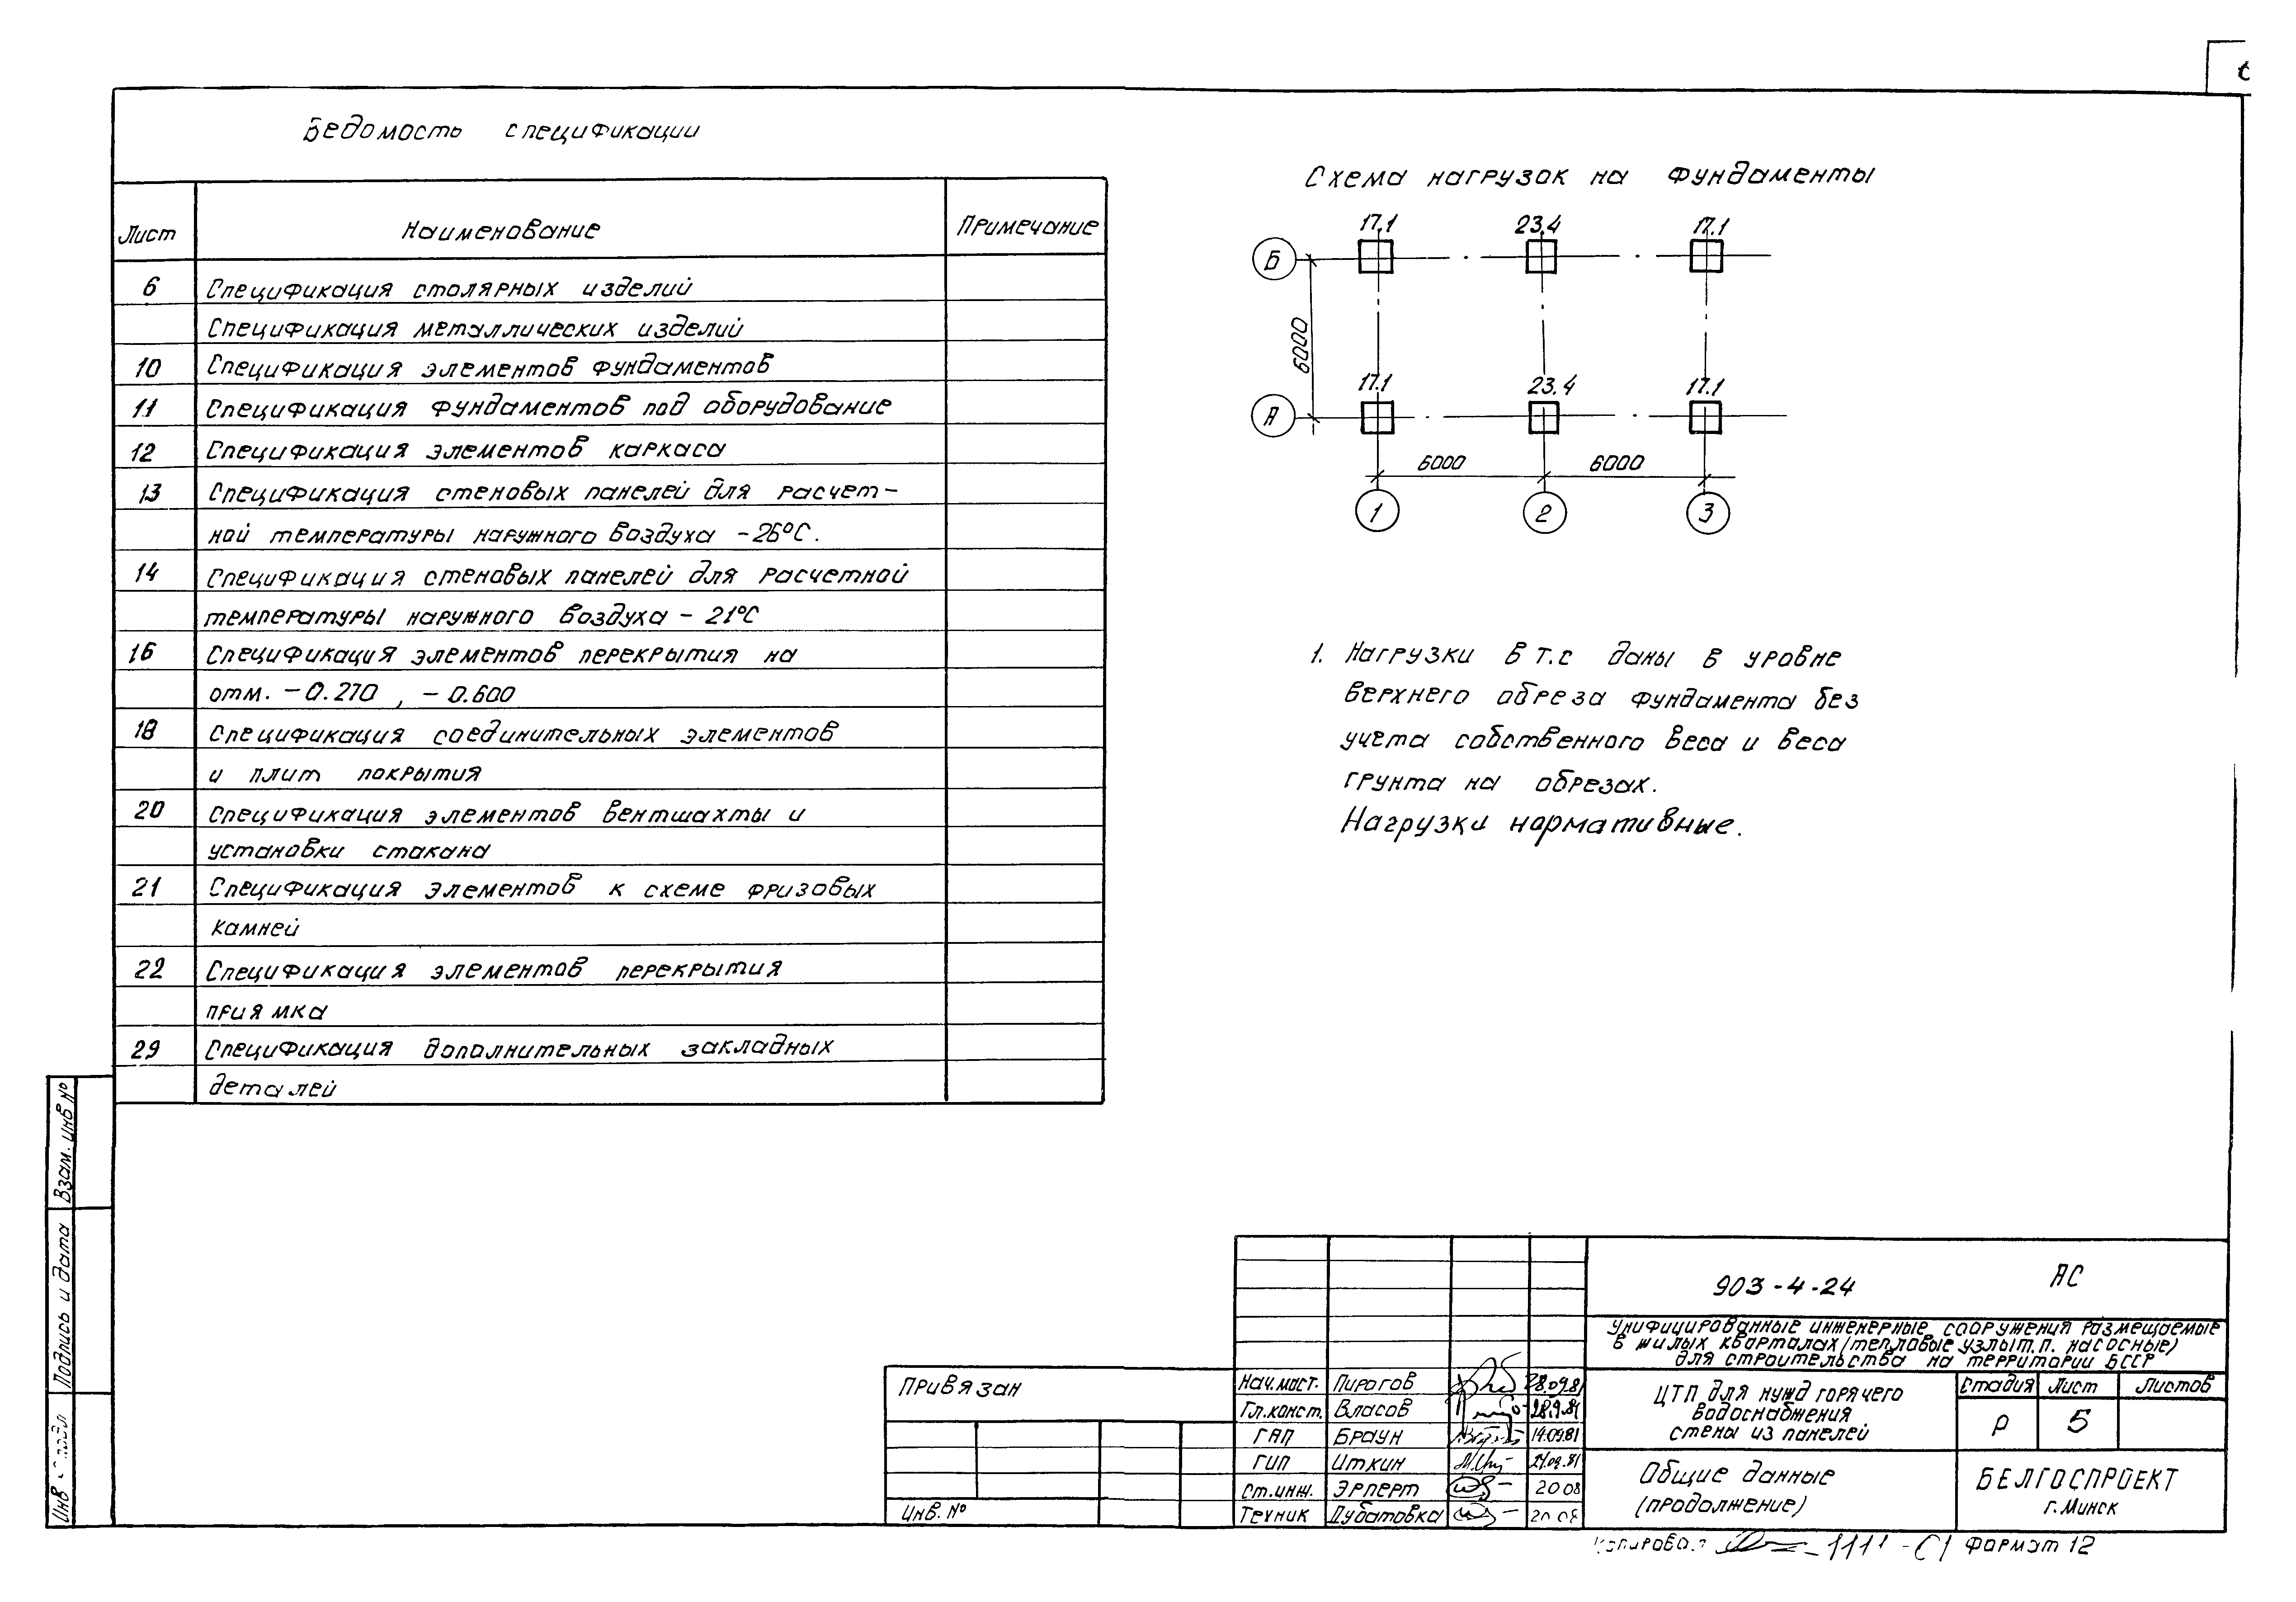 Ведомость спецификации
Лист Наименование Примечание
6 Спецификация столярных изделий
Спецификация металлических изделий
10 Спецификация элементов фундаментов
11 Спецификация фундаментов под оборудование
12 Спецификация элементов каркаса
13 Спецификация стеновых панелей для расчет-
ной температуры наружного воздуха -26°С.
14 Спецификация стеновых панелей для расчетной
температуры наружного воздуха - 21°С
16 Спецификация элементов перекрытия на
отм. -0.270 , -0.600
18 Спецификация соединительных элементов
и плит покрытия
20 Спецификация элементов вентшахты и
установки стакана
21 Спецификация элементов к схеме фризовых
камней
22 Спецификация элементов перекрытия
приямка
29 Спецификация дополнительных закладных
деталей
Схема нагрузок на фундаменты
17.1 23.4 17.1
Б
6000
17.1 23.4 17.1
А
6000 6000
1 2 3
1. Нагрузки в т.с даны в уровне
верхнего обреза фундамента без
учета собственного веса и веса
грунта на обрезах.
Нагрузки нормативные.
Взам. инв №
Подпись и дата
Инв
Привязан
Инв. №
903-4-24 АС
Унифицированные инженерные сооружения размещаемые
в жилых кварталах (тепловые узлы т.п. насосные)
для строительства на территории БССР
Нач.маст. Пирогов 28.09.81
Гл.конст. Власов
ГАП Браун 14.09.81
ГИП Иткин 21.09.81
Ст.инж. Эрперт 20 08
Техник Дубатовка 20 08
ЦТП для нужд горячего
водоснабжения
стены из панелей
Стадия Лист Листов
Р 5
Общие данные
(продолжение)
БЕЛГОСПРОЕКТ
г. Минск
Копировал Формат 12